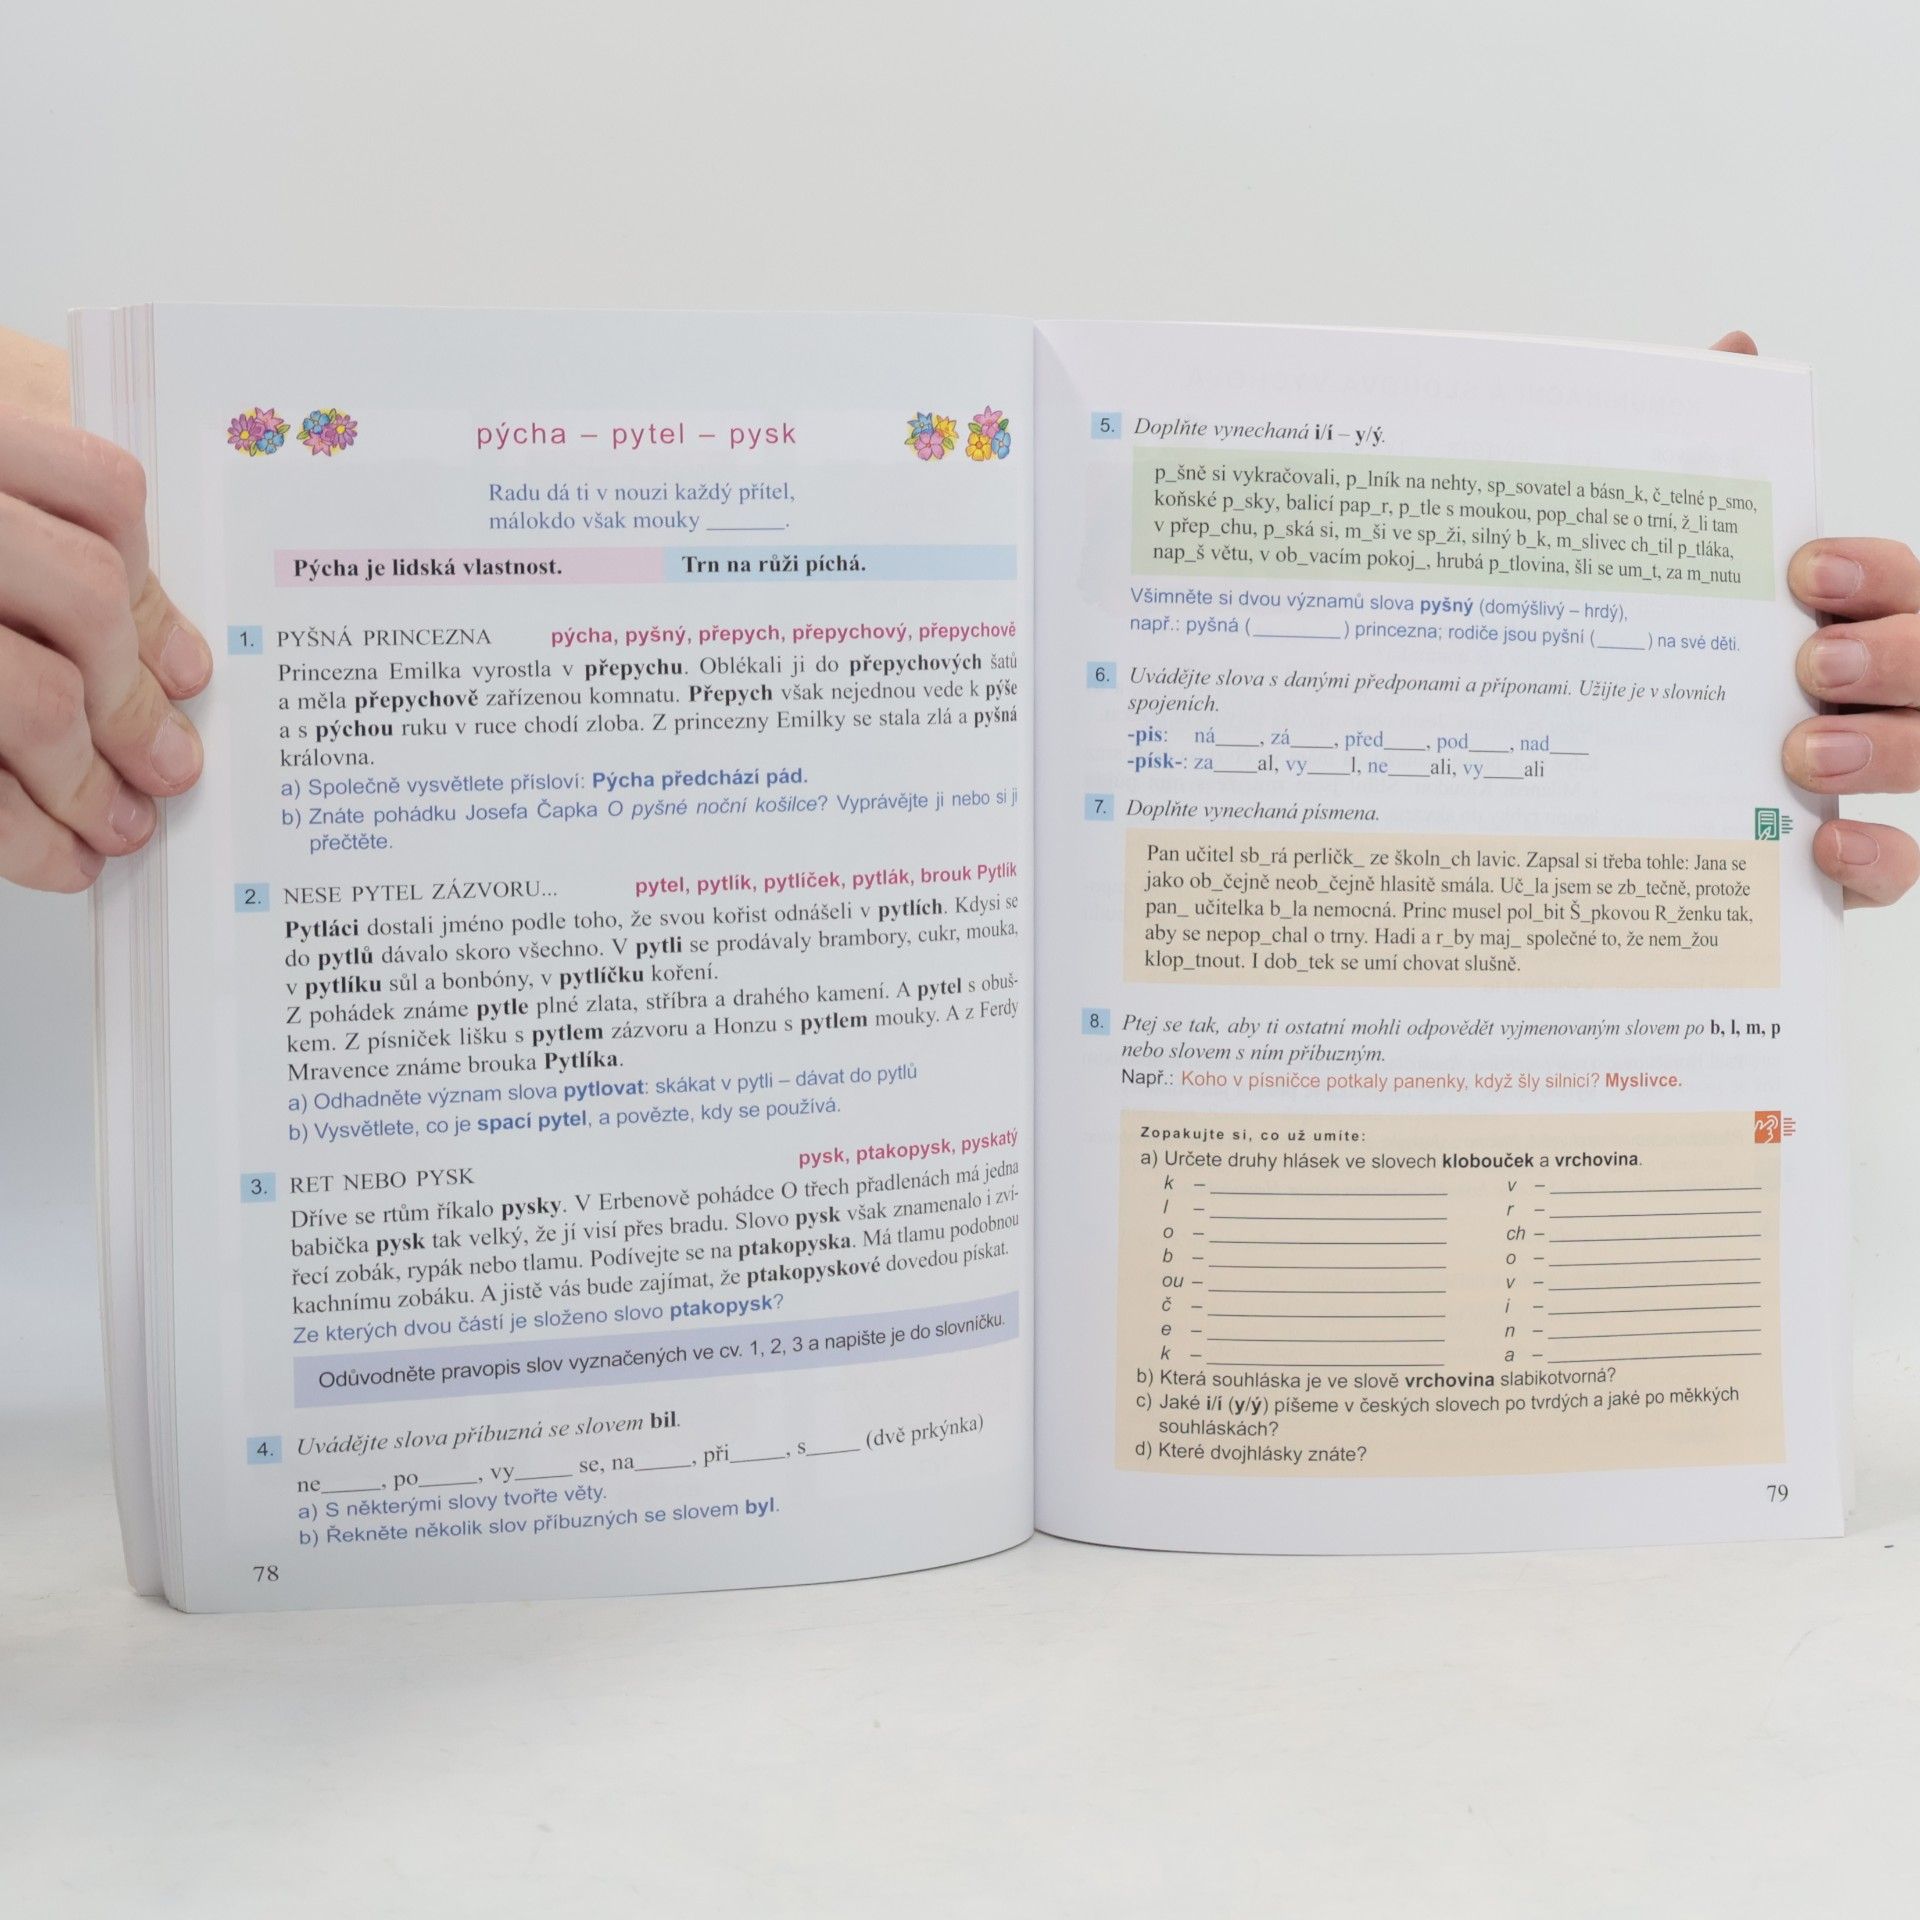 pýcha – pytel – pysk
Radu dá ti v nouzi každý přítel,
málokdo však mouky ______.
Pýcha je lidská vlastnost.
Trn na růži píchá.
1. PYŠNÁ PRINCEZNA pýcha, pyšný, přepych, přepychový, přepychově
Princezna Emilka vyrostla v přepychu. Oblékali ji do přepychových šatů
a měla přepychově zařízenou komnatu. Přepych však nejednou vede k pýše
a s pýchou ruku v ruce chodí zloba. Z princezny Emilky se stala zlá a pyšná
královna.
a) Společně vysvětlete přísloví: Pýcha předchází pád.
b) Znáte pohádku Josefa Čapka O pyšné noční košilce? Vyprávějte ji nebo si ji
přečtěte.
2. NESE PYTEL ZÁZVORU... pytel, pytlík, pytlíček, pytlák, brouk Pytlík
Pytláci dostali jméno podle toho, že svou kořist odnášeli v pytlích. Kdysi se
do pytlů dávalo skoro všechno. V pytli se prodávaly brambory, cukr, mouka,
v pytlíku sůl a bonbóny, v pytlíčku koření.
Z pohádek známe pytle plné zlata, stříbra a drahého kamení. A pytel s obuš-
kem. Z písniček lišku s pytlem zázvoru a Honzu s pytlem mouky. A z Ferdy
Mravence známe brouka Pytlíka.
a) Odhadněte význam slova pytlovat: skákat v pytli – dávat do pytlů
b) Vysvětlete, co je spací pytel, a povězte, kdy se používá.
pysk, ptakopysk, pyskatý
3. RET NEBO PYSK
Dříve se rtům říkalo pysky. V Erbenově pohádce O třech přadlenách má jedna
babička pysk tak velký, že jí visí přes bradu. Slovo pysk však znamenalo i zví-
řecí zobák, rypák nebo tlamu. Podívejte se na ptakopyska. Má tlamu podobnou
kachnímu zobáku. A jistě vás bude zajímat, že ptakopyskové dovedou pískat.
Ze kterých dvou částí je složeno slovo ptakopysk?
Odůvodněte pravopis slov vyznačených ve cv. 1, 2, 3 a napište je do slovníčku.
4. Uvádějte slova příbuzná se slovem bil.
ne_____, po_____, vy_____ se, na_____, při_____, s_____ (dvě prkýnka)
a) S některými slovy tvořte věty.
b) Řekněte několik slov příbuzných se slovem byl.
78
5. Doplňte vynechaná i/í – y/ý.
p_šně si vykračovali, p_lník na nehty, sp_sovatel a básn_k, č_telné p_smo,
koňské p_sky, balicí pap_r, p_tle s moukou, pop_chal se o trní, ž_li tam
v přep_chu, p_ská si, m_ši ve sp_ži, silný b_k, m_slivec ch_til p_tláka,
nap_š větu, v ob_vacím pokoj_, hrubá p_tlovina, šli se um_t, za m_nutu
Všimněte si dvou významů slova pyšný (domýšlivý – hrdý),
např.: pyšná (________) princezna; rodiče jsou pyšní (_____) na své děti.
6. Uvádějte slova s danými předponami a příponami. Užijte je v slovních
spojeních.
-pis: ná____, zá____, před____, pod____, nad____
-písk-: za____al, vy____l, ne____ali, vy____ali
7. Doplňte vynechaná písmena.
Pan učitel sb_rá perličk_ ze školn_ch lavic. Zapsal si třeba tohle: Jana se
jako ob_čejně neob_čejně hlasitě smála. Uč_la jsem se zb_tečně, protože
pan_ učitelka b_la nemocná. Princ musel pol_bit Š_pkovou R_ženku tak,
aby se nepop_chal o trny. Hadi a r_by maj_ společné to, že nem_žou
klop_tnout. I dob_tek se umí chovat slušně.
8. Ptej se tak, aby ti ostatní mohli odpovědět vyjmenovaným slovem po b, l, m, p
nebo slovem s ním příbuzným.
Např.: Koho v písničce potkaly panenky, když šly silnicí? Myslivce.
Zopakujte si, co už umíte:
a) Určete druhy hlásek ve slovech klobouček a vrchovina.
k – ____________ v – ____________
l – ____________ r – ____________
o – ____________ ch – ____________
b – ____________ o – ____________
ou – ____________ v – ____________
č – ____________ i – ____________
e – ____________ n – ____________
k – ____________ a – ____________
b) Která souhláska je ve slově vrchovina slabikotvorná?
c) Jaké i/í (y/ý) píšeme v českých slovech po tvrdých a jaké po měkkých
souhláskách?
d) Které dvojhlásky znáte?
79